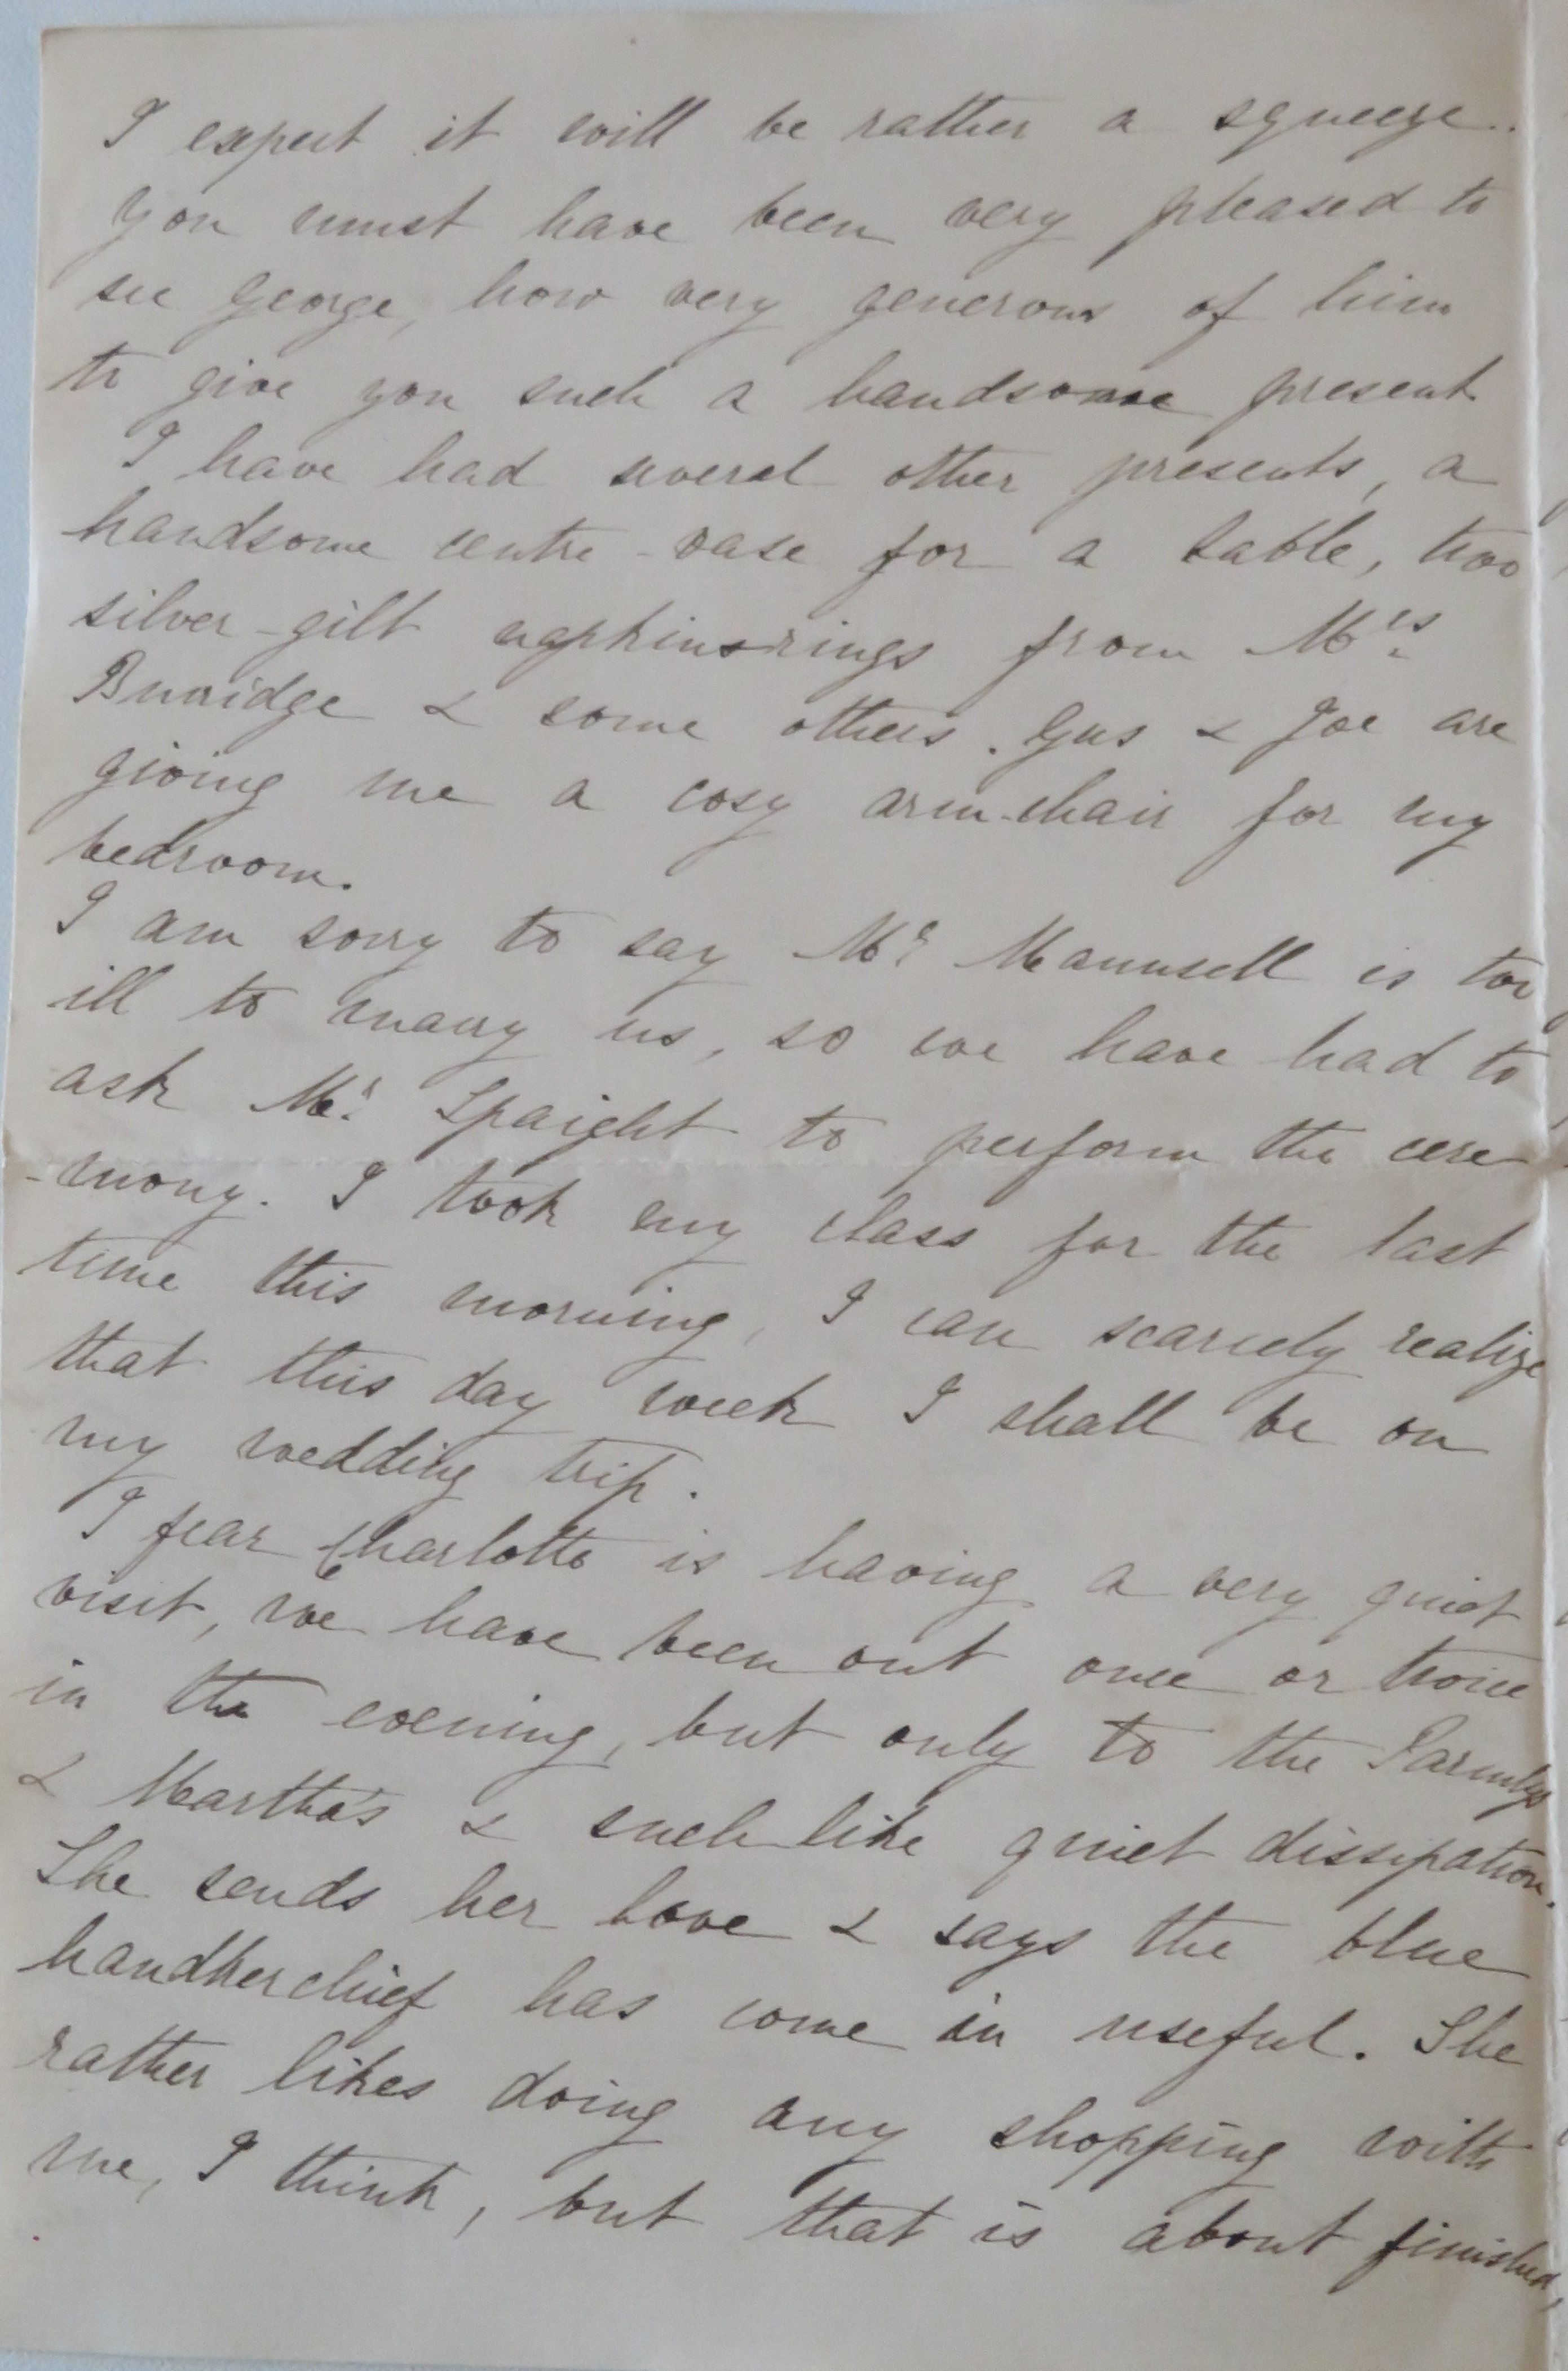 I expect it will be rather a squeeze.
You must have been very pleased to
see George, how very generous of him
to give you such a handsome present
I have had several other presents, a
handsome centre-vase for a table, two
silver-gilt napkinsrings from Mrs.
Burridge & some others. Gus & Joe are
giving me a cosy arm-chair for my
bedroom.
I am sorry to say Mr. Maunsell is too
ill to marry us, so we have had to
ask Mr. Spaight to perform the cere
-mony. I took my class for the last
time this morning, I can scarcely realize
that this day week I shall be on
my wedding trip.
I fear Charlotte is having a very quiet
visit, we have been out once or twice
in the evening, but only to the Parmlys
& Martha's & such like quiet dissipation.
She sends her love & says the blue
handkerchief has come in useful. She
rather likes doing any shopping with
me, I think, but that is about finished,